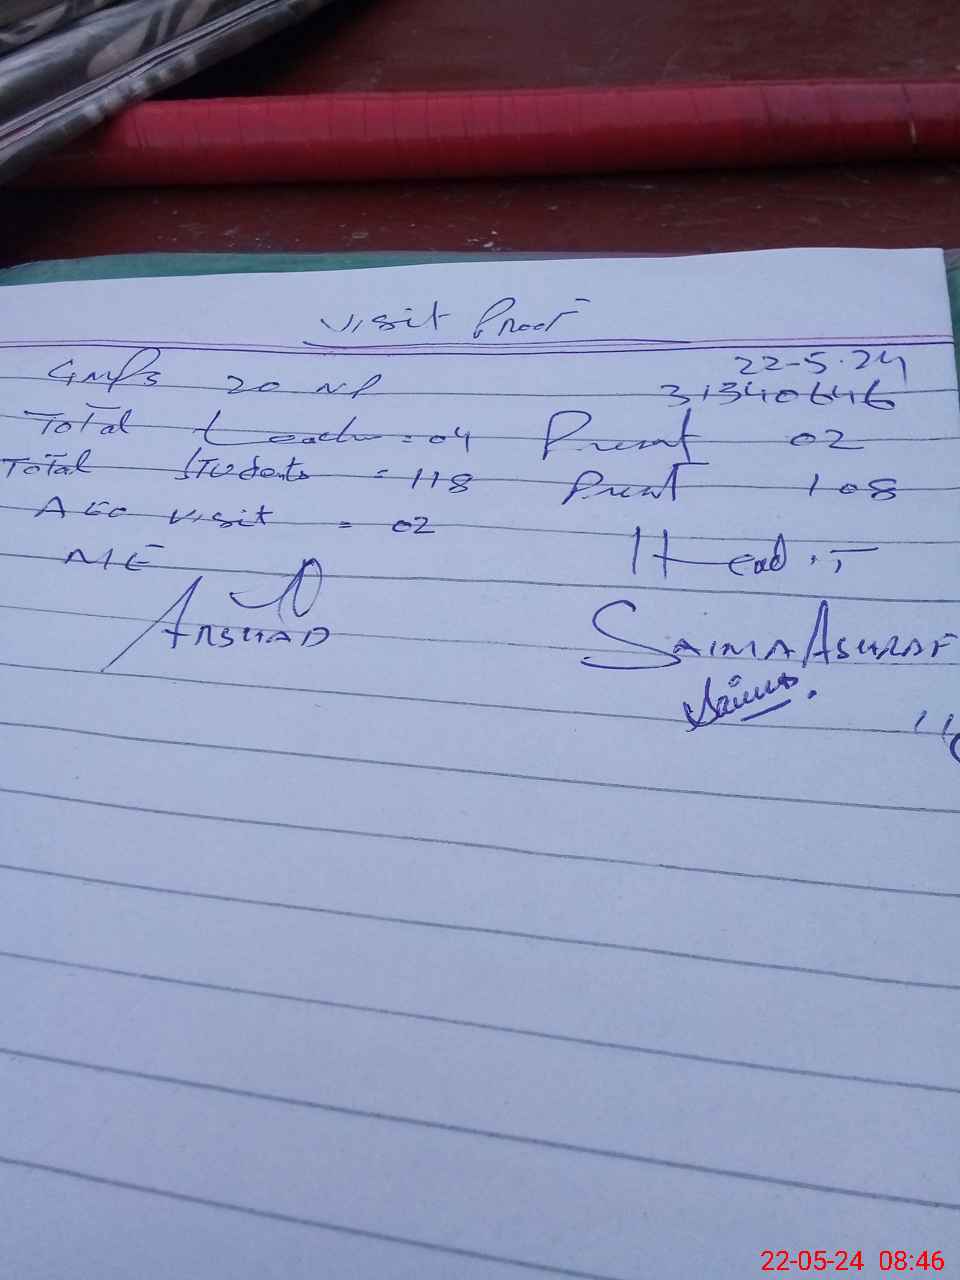 Visit Proof
22-5-24
GMPS 20 NP 31340646
Total teacher = 04 Present 02
Total Students = 118 Present 108
AEO visit = 02
ME Head.T
ARSHAD SAIMA ASHRAF
Saima.
22-05-24 08:46